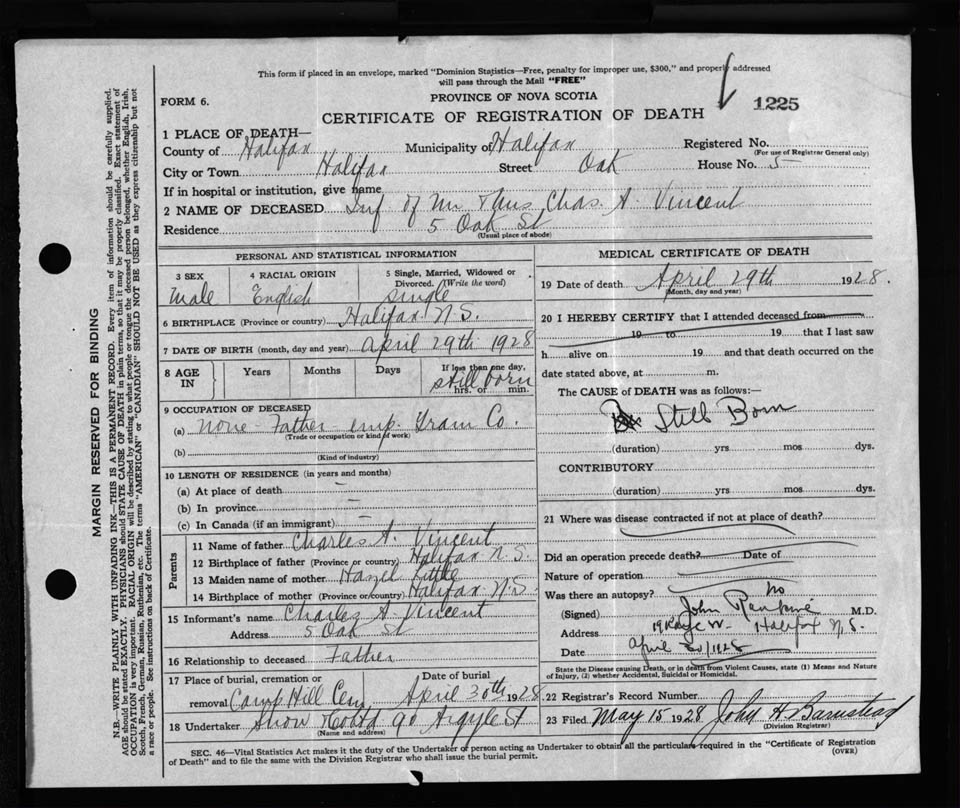 This form if placed in an envelope, marked "Dominion Statistics—Free, penalty for improper use, $300," and properly addressed
will pass through the Mail "FREE"
PROVINCE OF NOVA SCOTIA
FORM 6.
CERTIFICATE OF REGISTRATION OF DEATH
1225
1 PLACE OF DEATH—
County of Halifax Municipality of Halifax Registered No.
(For use of Registrar General only)
City or Town Halifax Street Oak House No. 5
If in hospital or institution, give name
2 NAME OF DECEASED Inf of Mr Chas. A. Vincent
Residence 5 Oak St
(Usual place of abode)
PERSONAL AND STATISTICAL INFORMATION
3 SEX 4 RACIAL ORIGIN 5 Single, Married, Widowed or
Divorced. (Write the word)
Male English single
6 BIRTHPLACE (Province or country) Halifax N.S.
7 DATE OF BIRTH (month, day and year) April 29th 1928
8 AGE IN Years Months Days If less than one day,
still born
hrs. or min.
9 OCCUPATION OF DECEASED
(a) none Father emp. Tram Co.
(Trade or occupation or kind of work)
(b)
(Kind of industry)
10 LENGTH OF RESIDENCE (in years and months)
(a) At place of death —
(b) In province —
(c) In Canada (if an immigrant) —
Parents
11 Name of father Charles A. Vincent
12 Birthplace of father (Province or country) Halifax N.S.
13 Maiden name of mother Hazel
14 Birthplace of mother (Province or country) Halifax N.S.
15 Informant's name Charles A. Vincent
Address 5 Oak St
16 Relationship to deceased Father
17 Place of burial, cremation or Date of burial
removal Camp Hill Cem April 30th 1928
18 Undertaker Snow & Co Ltd 90 Argyle St
(Name and address)
MEDICAL CERTIFICATE OF DEATH
19 Date of death April 29th 1928.
(Month, day and year)
20 I HEREBY CERTIFY that I attended deceased from
19 to 19 that I last saw
h alive on 19 and that death occurred on the
date stated above, at m.
The CAUSE of DEATH was as follows:—
Still Born
(duration) yrs mos dys.
CONTRIBUTORY
(duration) yrs mos dys.
21 Where was disease contracted if not at place of death?
Did an operation precede death? Date of
Nature of operation
Was there an autopsy? No
(Signed) John Rankine M.D.
Address Halifax N.S.
Date April 30/1928
State the Disease causing Death, or in death from Violent Causes, state (1) Means and Nature
of Injury, (2) whether Accidental, Suicidal or Homicidal.
22 Registrar's Record Number
23 Filed May 15 1928 John H Barnstead
(Division Registrar)
SEC. 46—Vital Statistics Act makes it the duty of the Undertaker or person acting as Undertaker to obtain all the particulars required in the "Certificate of Registration
of Death" and to file the same with the Division Registrar who shall issue the burial permit. (OVER)
MARGIN RESERVED FOR BINDING
N.B.—WRITE PLAINLY WITH UNFADING INK—THIS IS A PERMANENT RECORD. Every item of information should be carefully supplied.
AGE should be stated EXACTLY. PHYSICIANS should STATE CAUSE OF DEATH in plain terms, so that it may be properly classified. Exact statement of
OCCUPATION is very important. RACIAL ORIGIN will be described by stating to what people or tongue the deceased person belonged, whether English, Irish,
Scotch, French, German, Russian, Ruthenian, etc. The terms "AMERICAN" or "CANADIAN" SHOULD NOT BE USED as they express citizenship but not
a race or people. See instructions on back of Certificate.